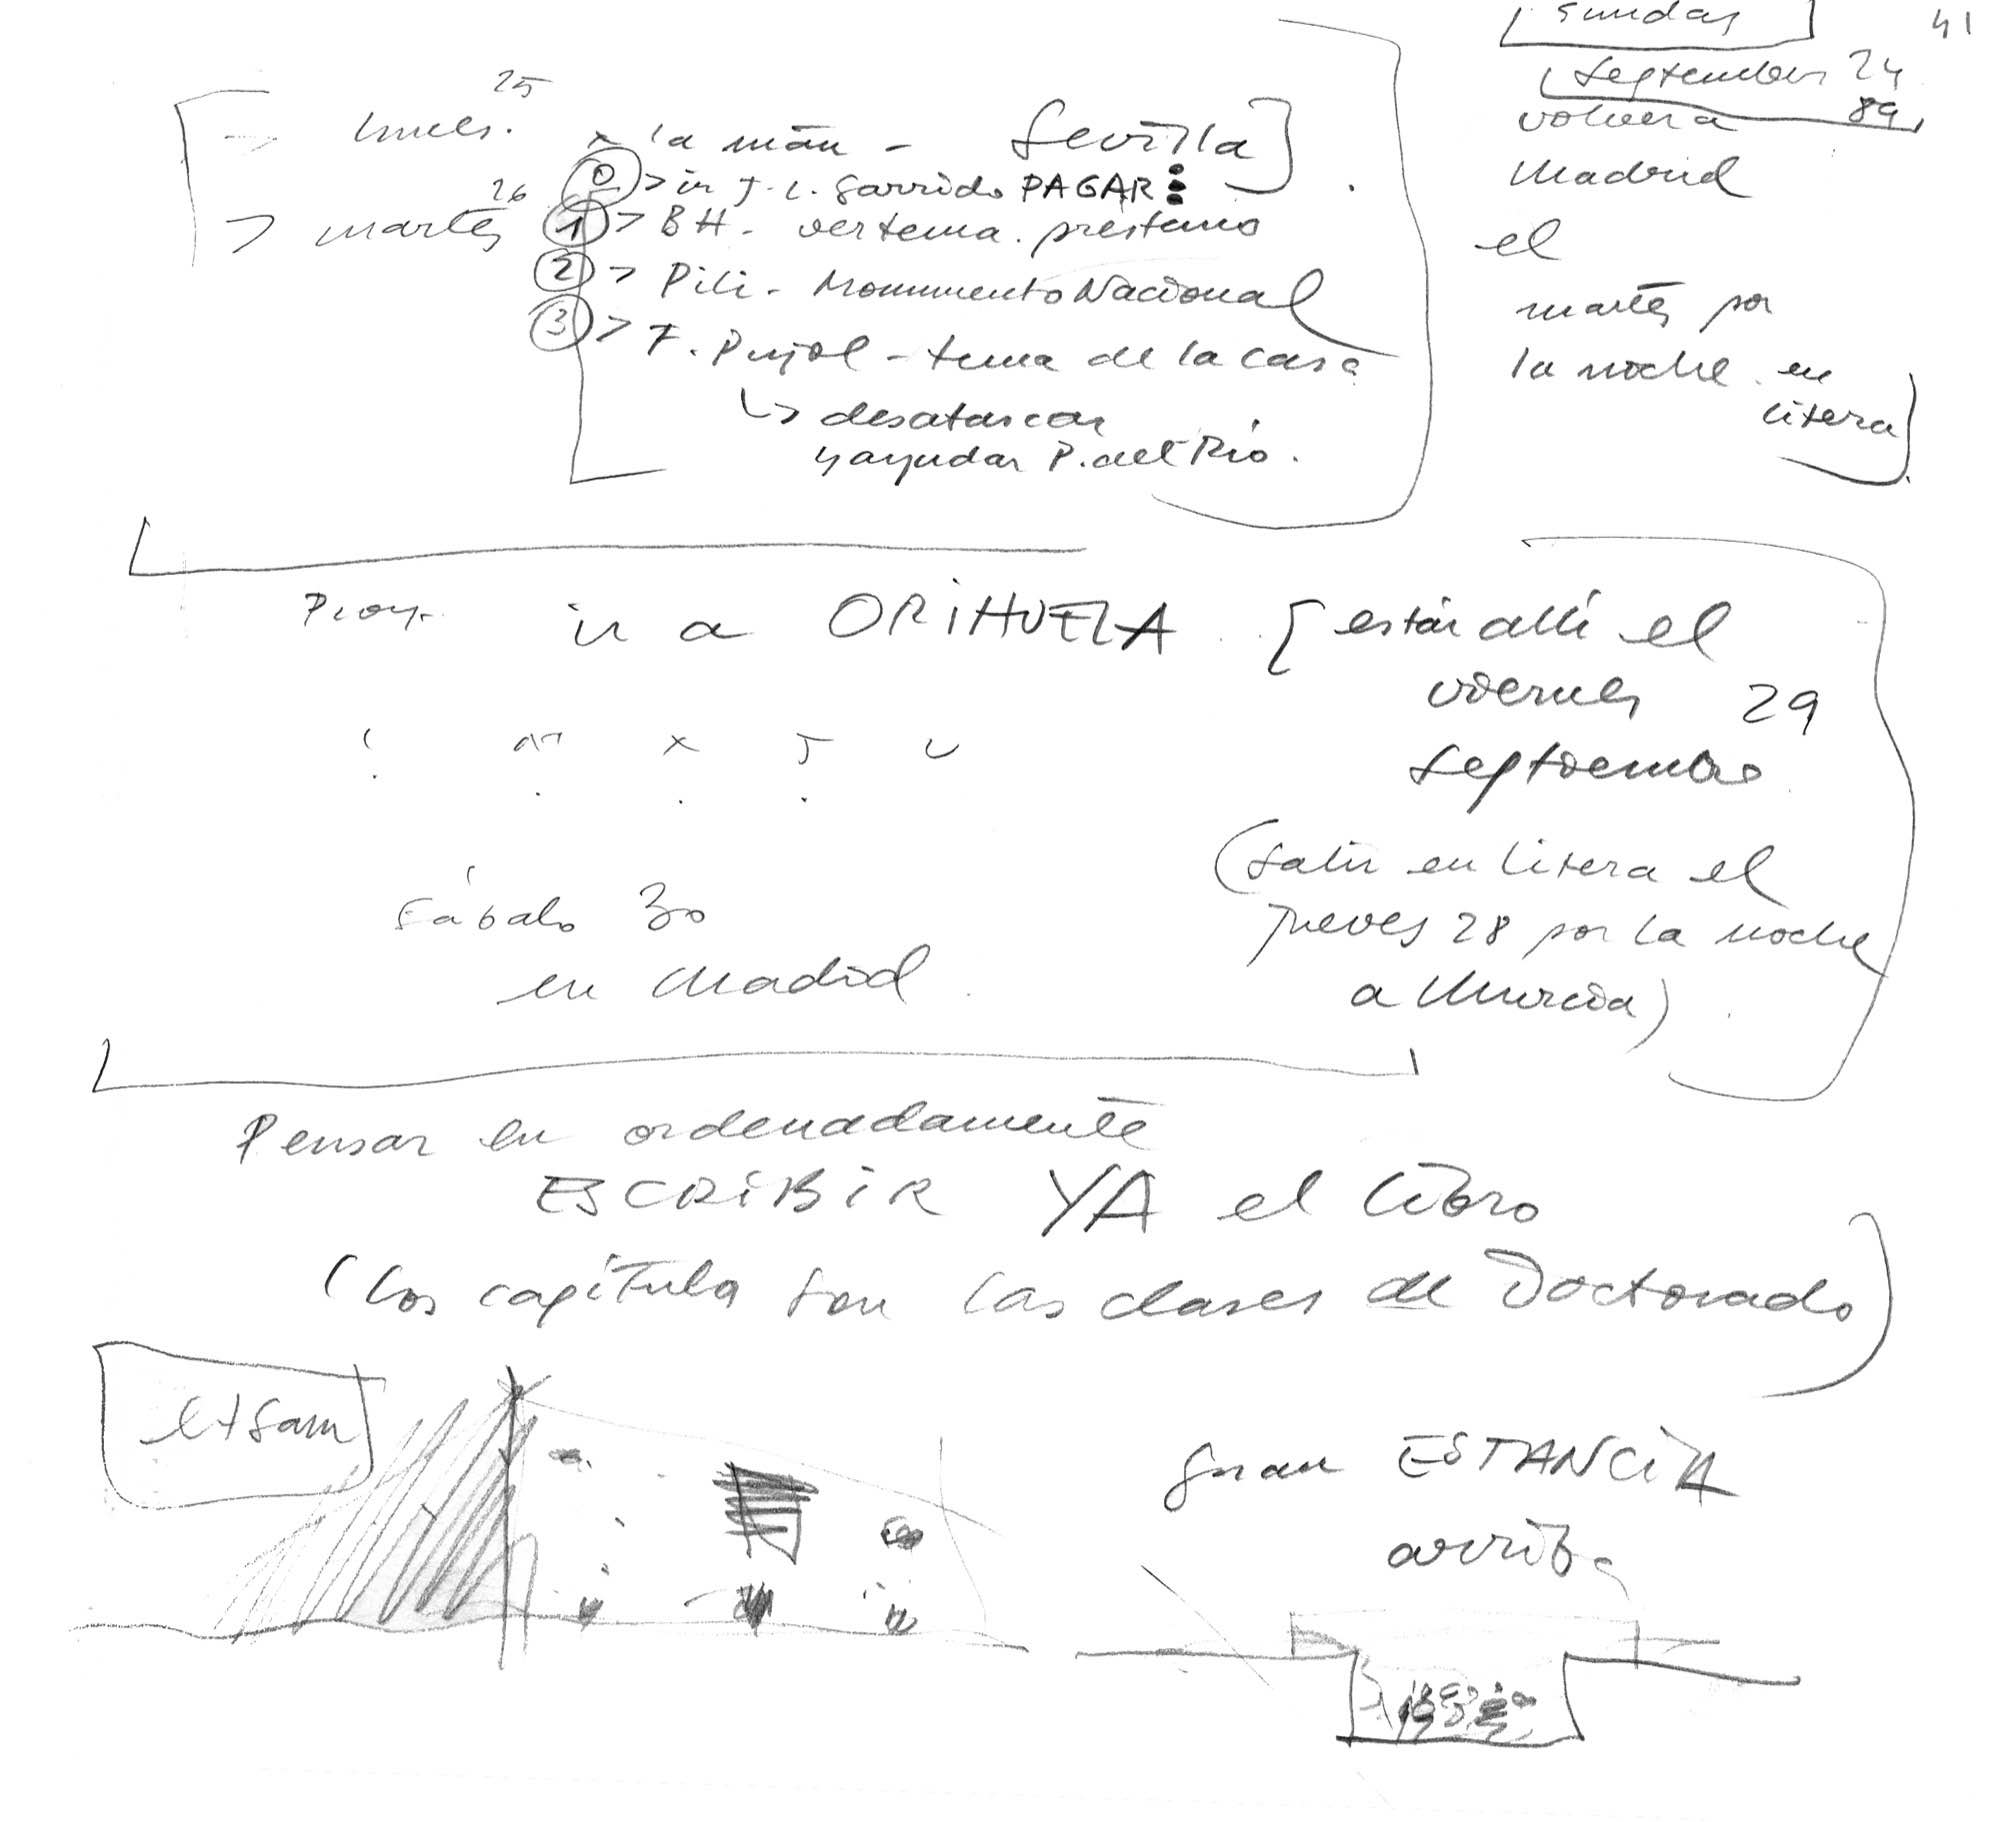 41
Sunday
September 24
89
lunes. 25
a la mañ - Sevilla
0 > ir J. L. Garrido PAGAR
> martes 26
1 > BH - ver tema. préstamo
2 > Pili - Monumento Nacional
3 > F. Pujol - tema de la casa
↳ desatascar
y ayudar P. del Río.
volver a
Madrid
el
martes por
la noche en
litera
Proy. ir a ORIHUELA [ estar allí el
viernes 29
septiembre
L M X J V
(salir en litera el
jueves 28 por la noche
a Murcia)
sábado 30
en Madrid
Pensar en ordenadamente
ESCRIBIR YA el libro
(los capítulos son las clases de Doctorado)
etsam
gran ESTANCIA
arriba